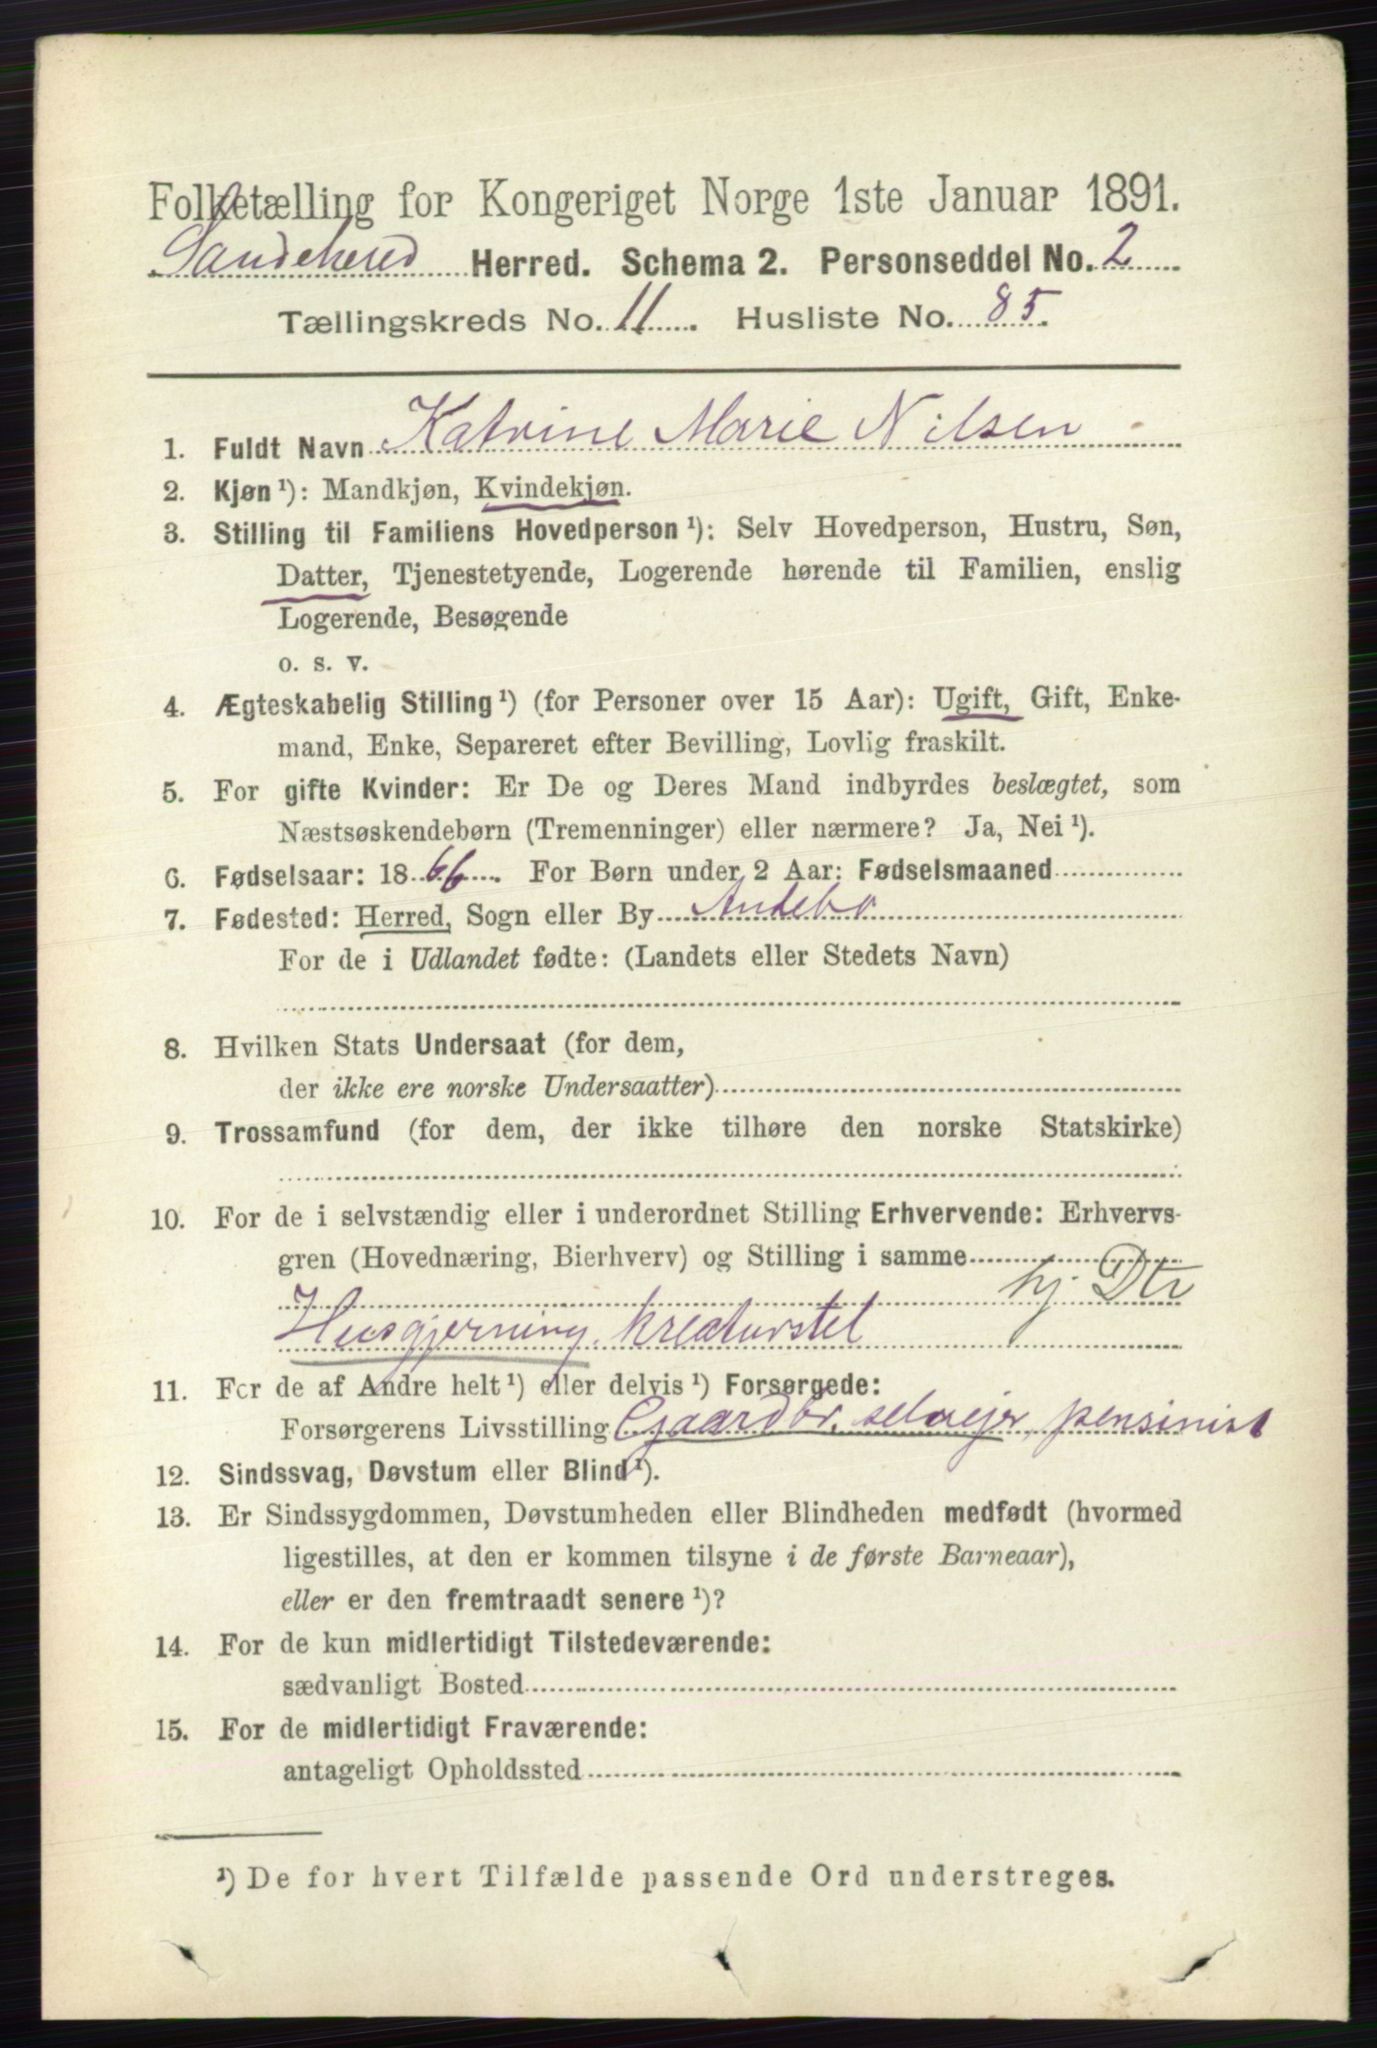 Folketælling for Kongeriget Norge 1ste Januar 1891.
Sandeherred Herred. Schema 2. Personseddel No. 2
Tællingskreds No. 11. Husliste No. 85.
1. Fuldt Navn Katrine Marie Nilsen
2. Kjøn ¹): Mandkjøn, Kvindekjøn.
3. Stilling til Familiens Hovedperson ¹): Selv Hovedperson, Hustru, Søn,
Datter, Tjenestetyende, Logerende hørende til Familien, enslig
Logerende, Besøgende
o. s. v.
4. Ægteskabelig Stilling ¹) (for Personer over 15 Aar): Ugift, Gift, Enke-
mand, Enke, Separeret efter Bevilling, Lovlig fraskilt.
5. For gifte Kvinder: Er De og Deres Mand indbyrdes beslægtet, som
Næstsøskendebørn (Tremenninger) eller nærmere? Ja, Nei ¹).
6. Fødselsaar: 1866. For Børn under 2 Aar: Fødselsmaaned
7. Fødested: Herred, Sogn eller By Andebo
For de i Udlandet fødte: (Landets eller Stedets Navn)
8. Hvilken Stats Undersaat (for dem,
der ikke ere norske Undersaatter)
9. Trossamfund (for dem, der ikke tilhøre den norske Statskirke)
10. For de i selvstændig eller i underordnet Stilling Erhvervende: Erhvervs-
gren (Hovednæring, Bierhverv) og Stilling i samme
hj. Dtr
Husgjerning, kreaturstel
11. For de af Andre helt ¹) eller delvis ¹) Forsørgede:
Forsørgerens Livsstilling Gaardbr. selvejer, pensinist
12. Sindssvag, Døvstum eller Blind ¹).
13. Er Sindssygdommen, Døvstumheden eller Blindheden medfødt (hvormed
ligestilles, at den er kommen tilsyne i de første Barneaar),
eller er den fremtraadt senere ¹)?
14. For de kun midlertidigt Tilstedeværende:
sædvanligt Bosted
15. For de midlertidigt Fraværende:
antageligt Opholdssted
¹) De for hvert Tilfælde passende Ord understreges.